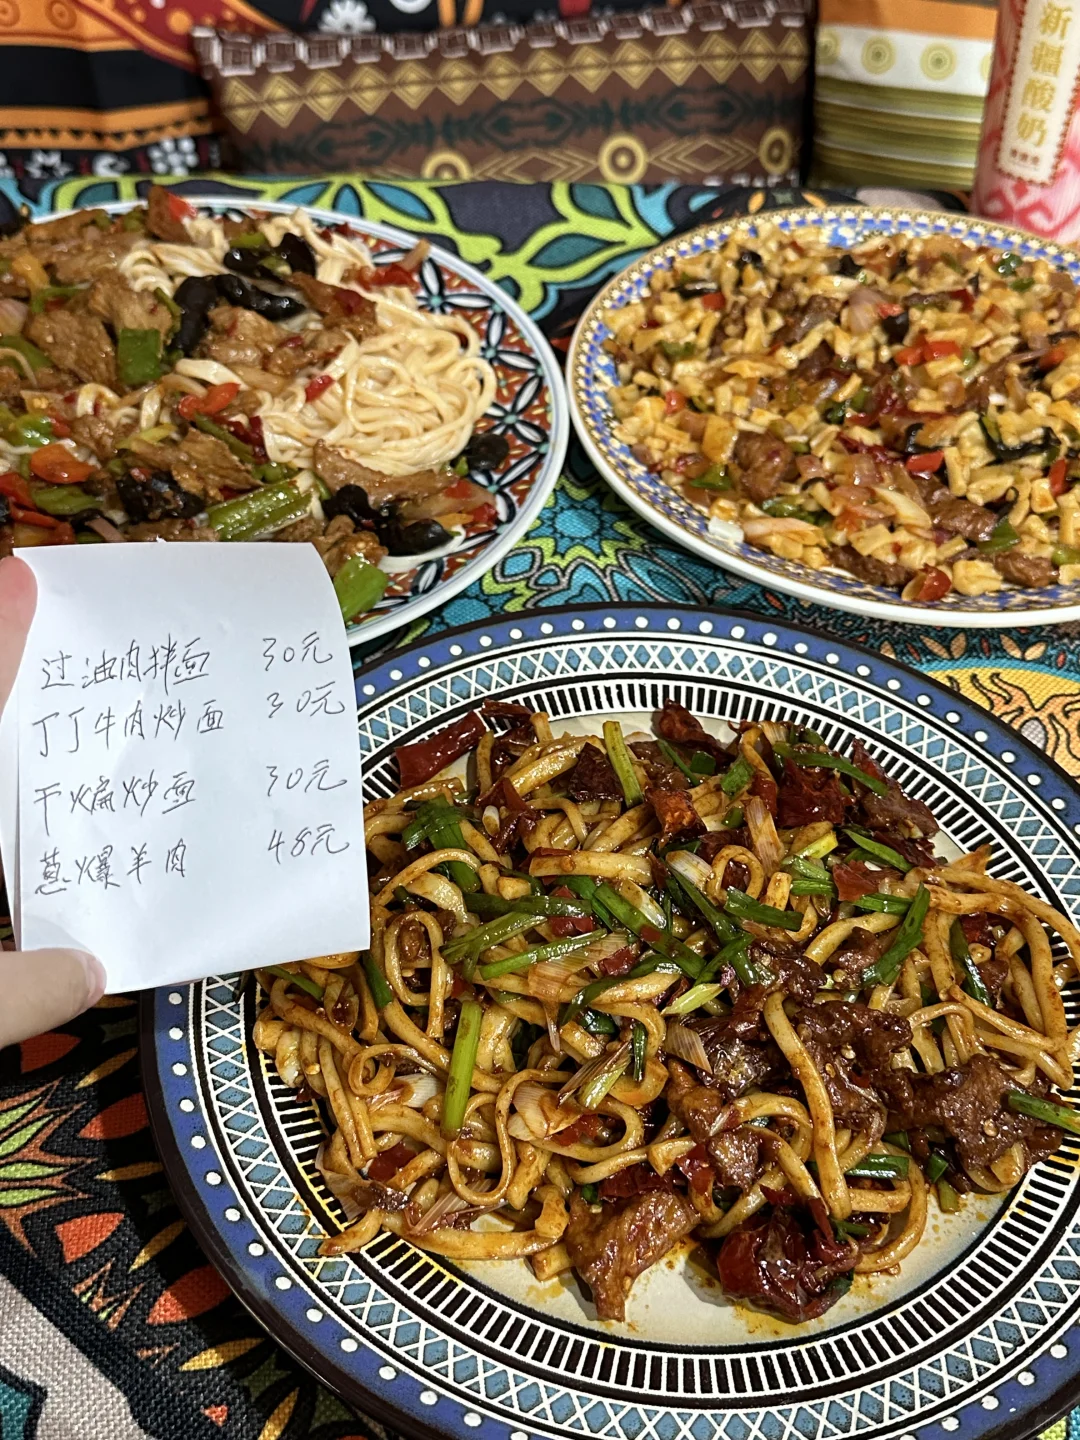 新疆酸奶
过油肉拌面 30元
丁丁牛肉炒面 30元
干煸炒面 30元
葱爆羊肉 48元